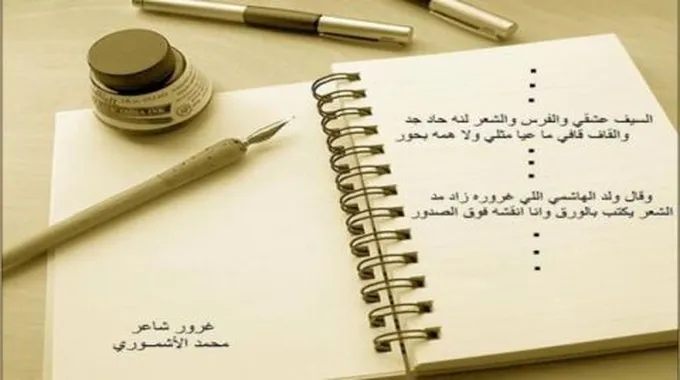 السيف عشقي والفرس والشعر لنه حاد جد
والقاف قافي ما عيا مثلي ولا همه بحور
وقال ولد الهاشمي اللي غروره زاد مد
الشعر يكتب بالورق وانا انقشه فوق الصدور
غرور شاعر
محمد الأشمـوري